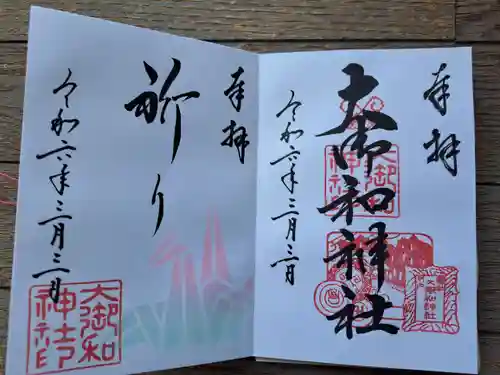 奉拝
大御和神社
令和六年三月三日
大御和神社
大御和神社
奉拝
祈り
令和六年三月三日
大御和神社印